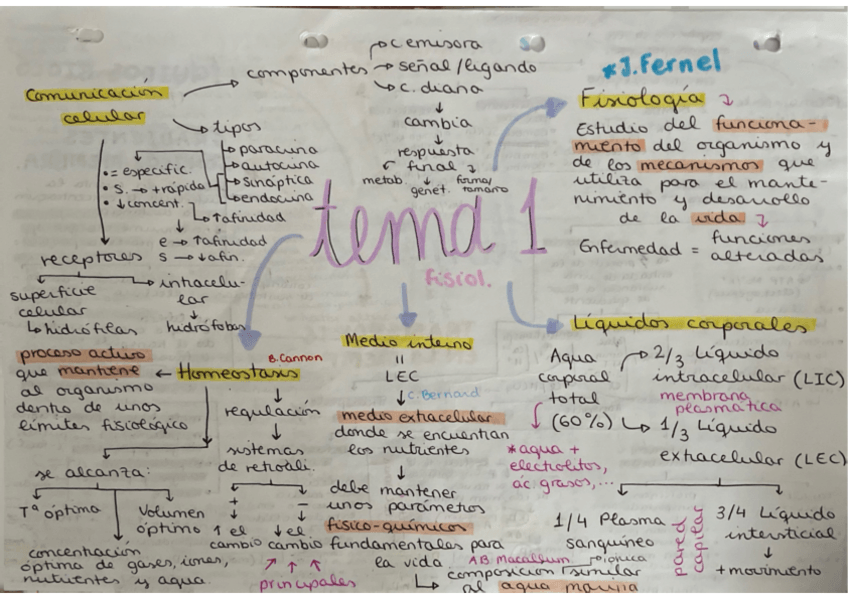 tema 1
fisiol.
*J. Fernel
Fisiología
Estudio del funciona-
miento del organismo y
de los mecanismos que
utiliza para el mante-
nimiento y desarrollo
de la vida
Enfermedad = funciones
alteradas
Comunicación
celular
componentes
c emisora
señal/ligando
c. diana
cambia
respuesta
final
metab.
genet.
forma/
tamaño
tipos
paracrina
autocrina
sináptica
endocrina
= especific.
S. → + rápida
↓ concent.
↑ afinidad
e → ↑ afinidad
s → ↓ afin.
receptores
superficie
celular
hidrófilas
intracelu-
lar
hidrófobas
B. Cannon
Homeostasis
proceso activo
que mantiene
al organismo
dentro de unos
límites fisiológico
se alcanza:
Tª óptima
volumen
óptimo
concentración
óptima de gases, iones,
nutrientes y agua.
regulación
sistemas
de retroali.
+
-
↑ el
cambio
↓ el
cambio
principales
Medio interno
=
LEC
C. Bernard
medio extracelular
donde se encuentran
los nutrientes
debe mantener
unos parámetros
físico-químicos
fundamentales para
la vida
A.B. Macallum
iónica
composición similar
al agua marina
Líquidos corporales
Agua
corporal
total
(60%)
*agua +
electrolitos,
ác. grasos,...
2/3 Líquido
intracelular (LIC)
membrana
plasmática
1/3 Líquido
extracelular (LEC)
1/4 Plasma
sanguíneo
pared
capilar
3/4 Líquido
intersticial
+ movimiento